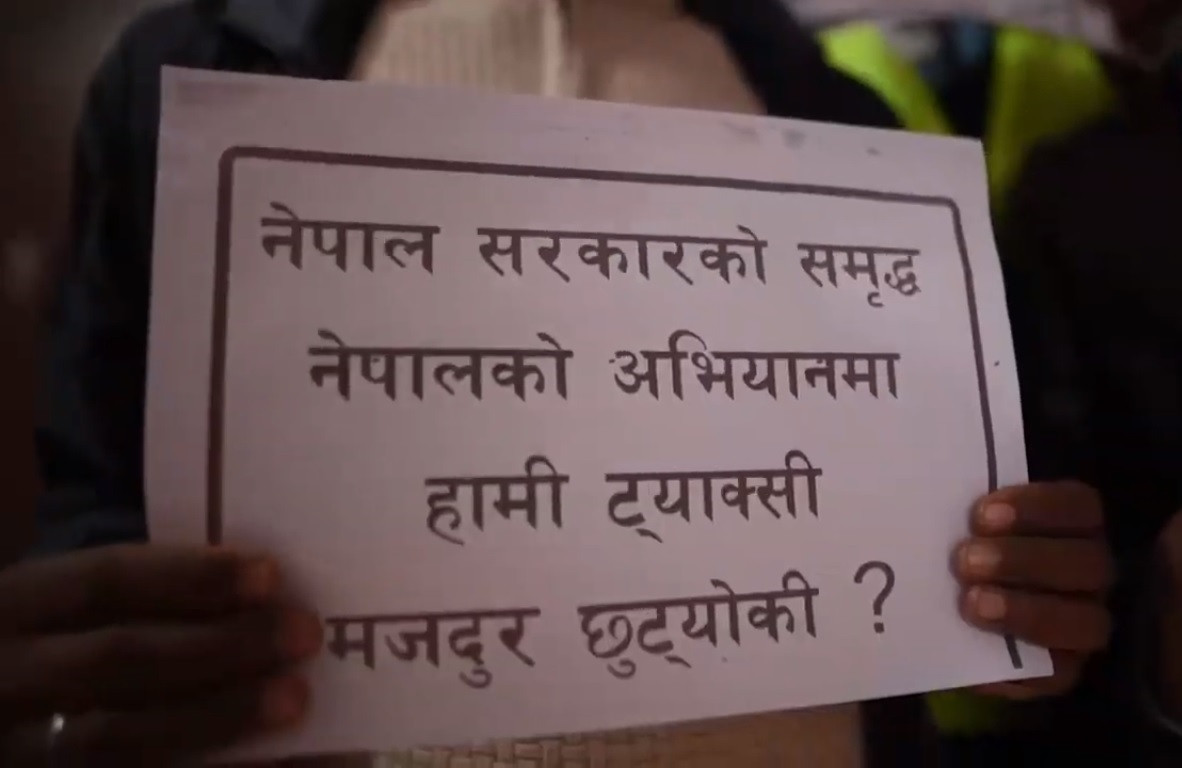 नेपाल सरकारको समृद्ध
नेपालको अभियानमा
हामी ट्याक्सी
मजदुर छुट्योकी ?